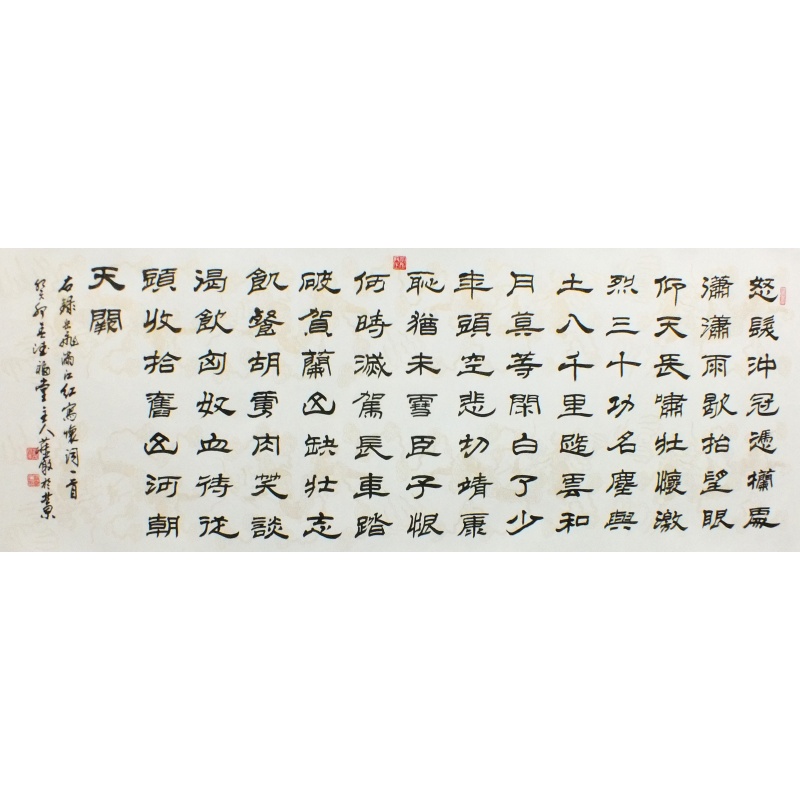 怒髮沖冠憑欄處
瀟瀟雨歇抬望眼
仰天長嘯壯懷激
烈三十功名塵與
土八千里路雲和
月莫等閑白了少
年頭空悲切靖康
恥猶未雪臣子恨
何時滅駕長車踏
破賀蘭山缺壯志
飢餐胡虜肉笑談
渴飲匈奴血待從
頭收拾舊山河朝
天闕
右錄岳飛滿江紅寫懷詞一首
癸卯